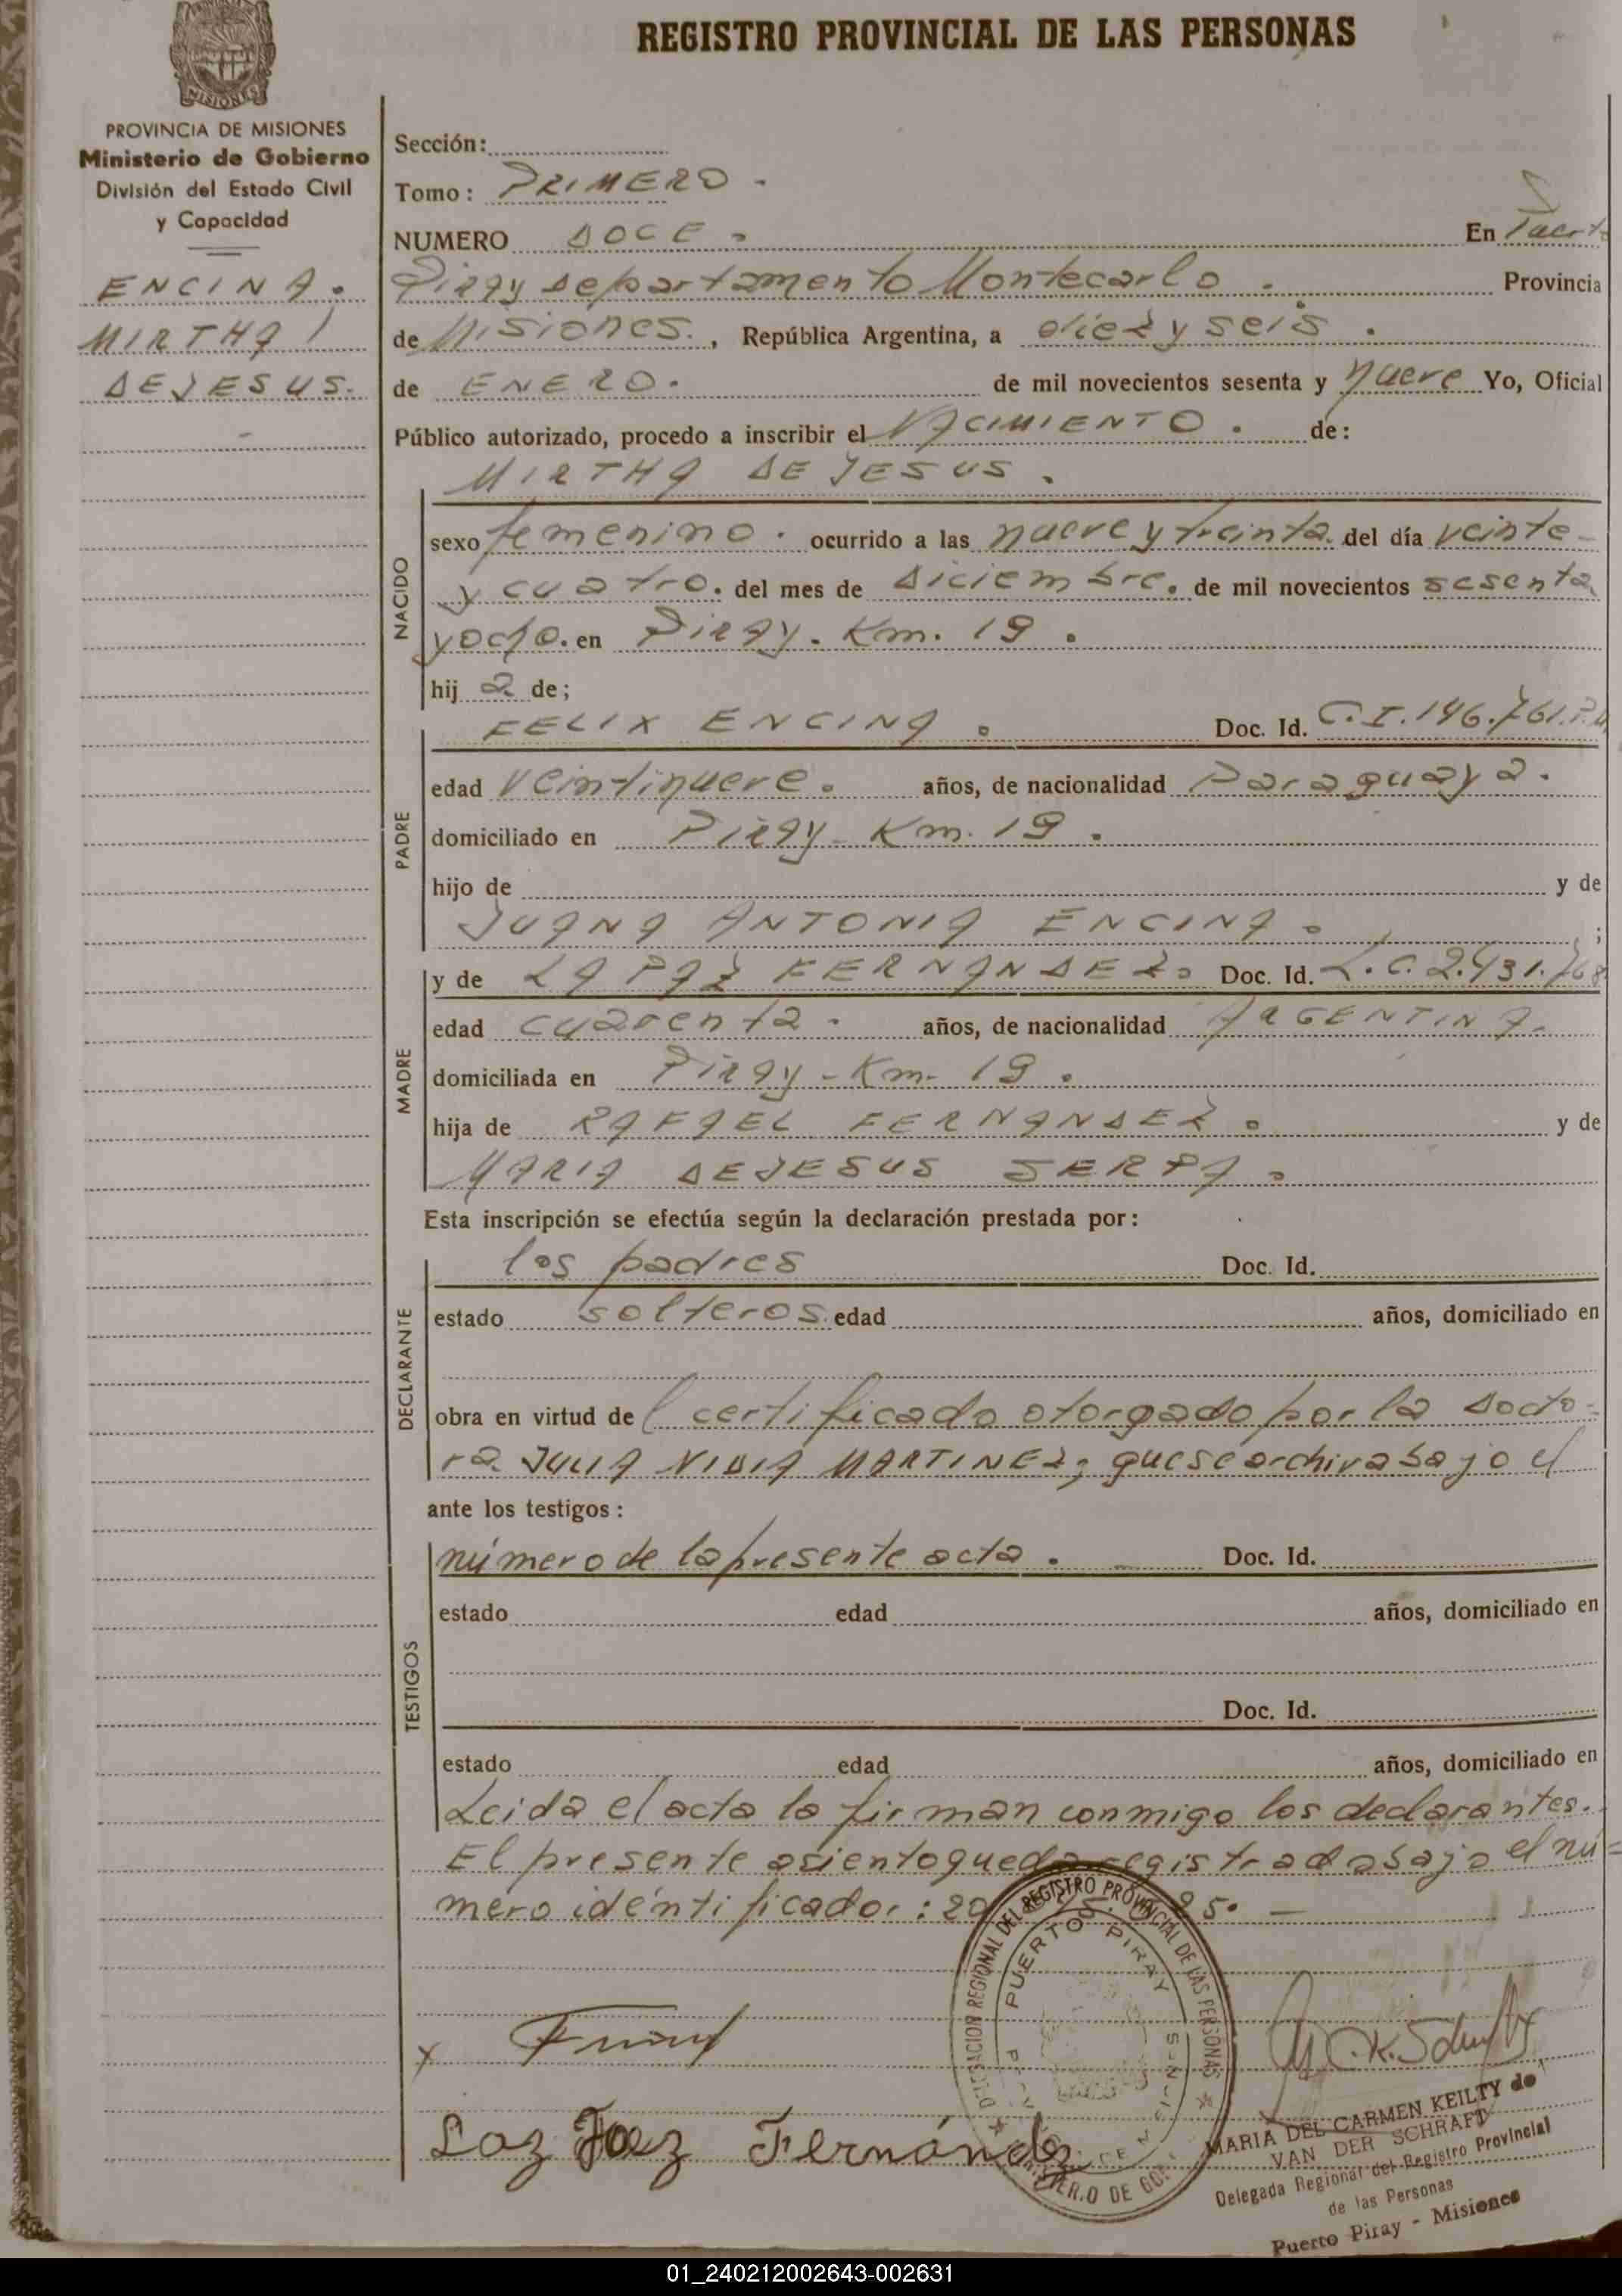 REGISTRO PROVINCIAL DE LAS PERSONAS
MISIONES
PROVINCIA DE MISIONES
Ministerio de Gobierno
División del Estado Civil
y Capacidad
ENCINA.
MIRTHA
DEJESUS.
Sección:
Tomo: PRIMERO.
NUMERO DOCE. En Puerto
Piray departamento Montecarlo. Provincia
de Misiones., República Argentina, a diez y seis.
de ENERO. de mil novecientos sesenta y nueve Yo, Oficial
Público autorizado, procedo a inscribir el NACIMIENTO. de:
MIRTHA DE JESUS.
NACIDO
sexo femenino. ocurrido a las nueve y treinta. del día veinte-
y cuatro. del mes de diciembre. de mil novecientos sesenta
y ocho. en Piray. Km. 19.
hij a de;
FELIX ENCINA. Doc. Id. C.I. 146.761.P.M
PADRE
edad veintinueve. años, de nacionalidad Paraguaya.
domiciliado en Piray-Km. 19.
hijo de y de
JUANA ANTONIA ENCINA. ;
y de LA PAZ FERNANDEZ. Doc. Id. L.C. 2.431.768
MADRE
edad cuarenta. años, de nacionalidad ARGENTINA.
domiciliada en Piray-Km- 19.
hija de RAFAEL FERNANDEZ. y de
MARIA DEJESUS SERPA.
Esta inscripción se efectúa según la declaración prestada por:
los padres Doc. Id.
DECLARANTE
estado solteros. edad años, domiciliado en
obra en virtud de l certificado otorgado por la docto=
ra JULIA NIDIA MARTINEZ, que se archiva bajo el
ante los testigos:
número de la presente acta. Doc. Id.
TESTIGOS
estado edad años, domiciliado en
Doc. Id.
estado edad años, domiciliado en
Leida el acta la firman conmigo los declarantes.
El presente asiento queda registrado bajo el nú=
mero identificador: 20 95. —
DELEGACION REGIONAL DEL REGISTRO PROVINCIAL DE LAS PERSONAS
PUERTO PIRAY
x
Fernández
MARIA DEL CARMEN KEILTY de
VAN DER SCHRAFT
Delegada Regional del Registro Provincial
de las Personas
Puerto Piray - Misiones
01_240212002643-002631